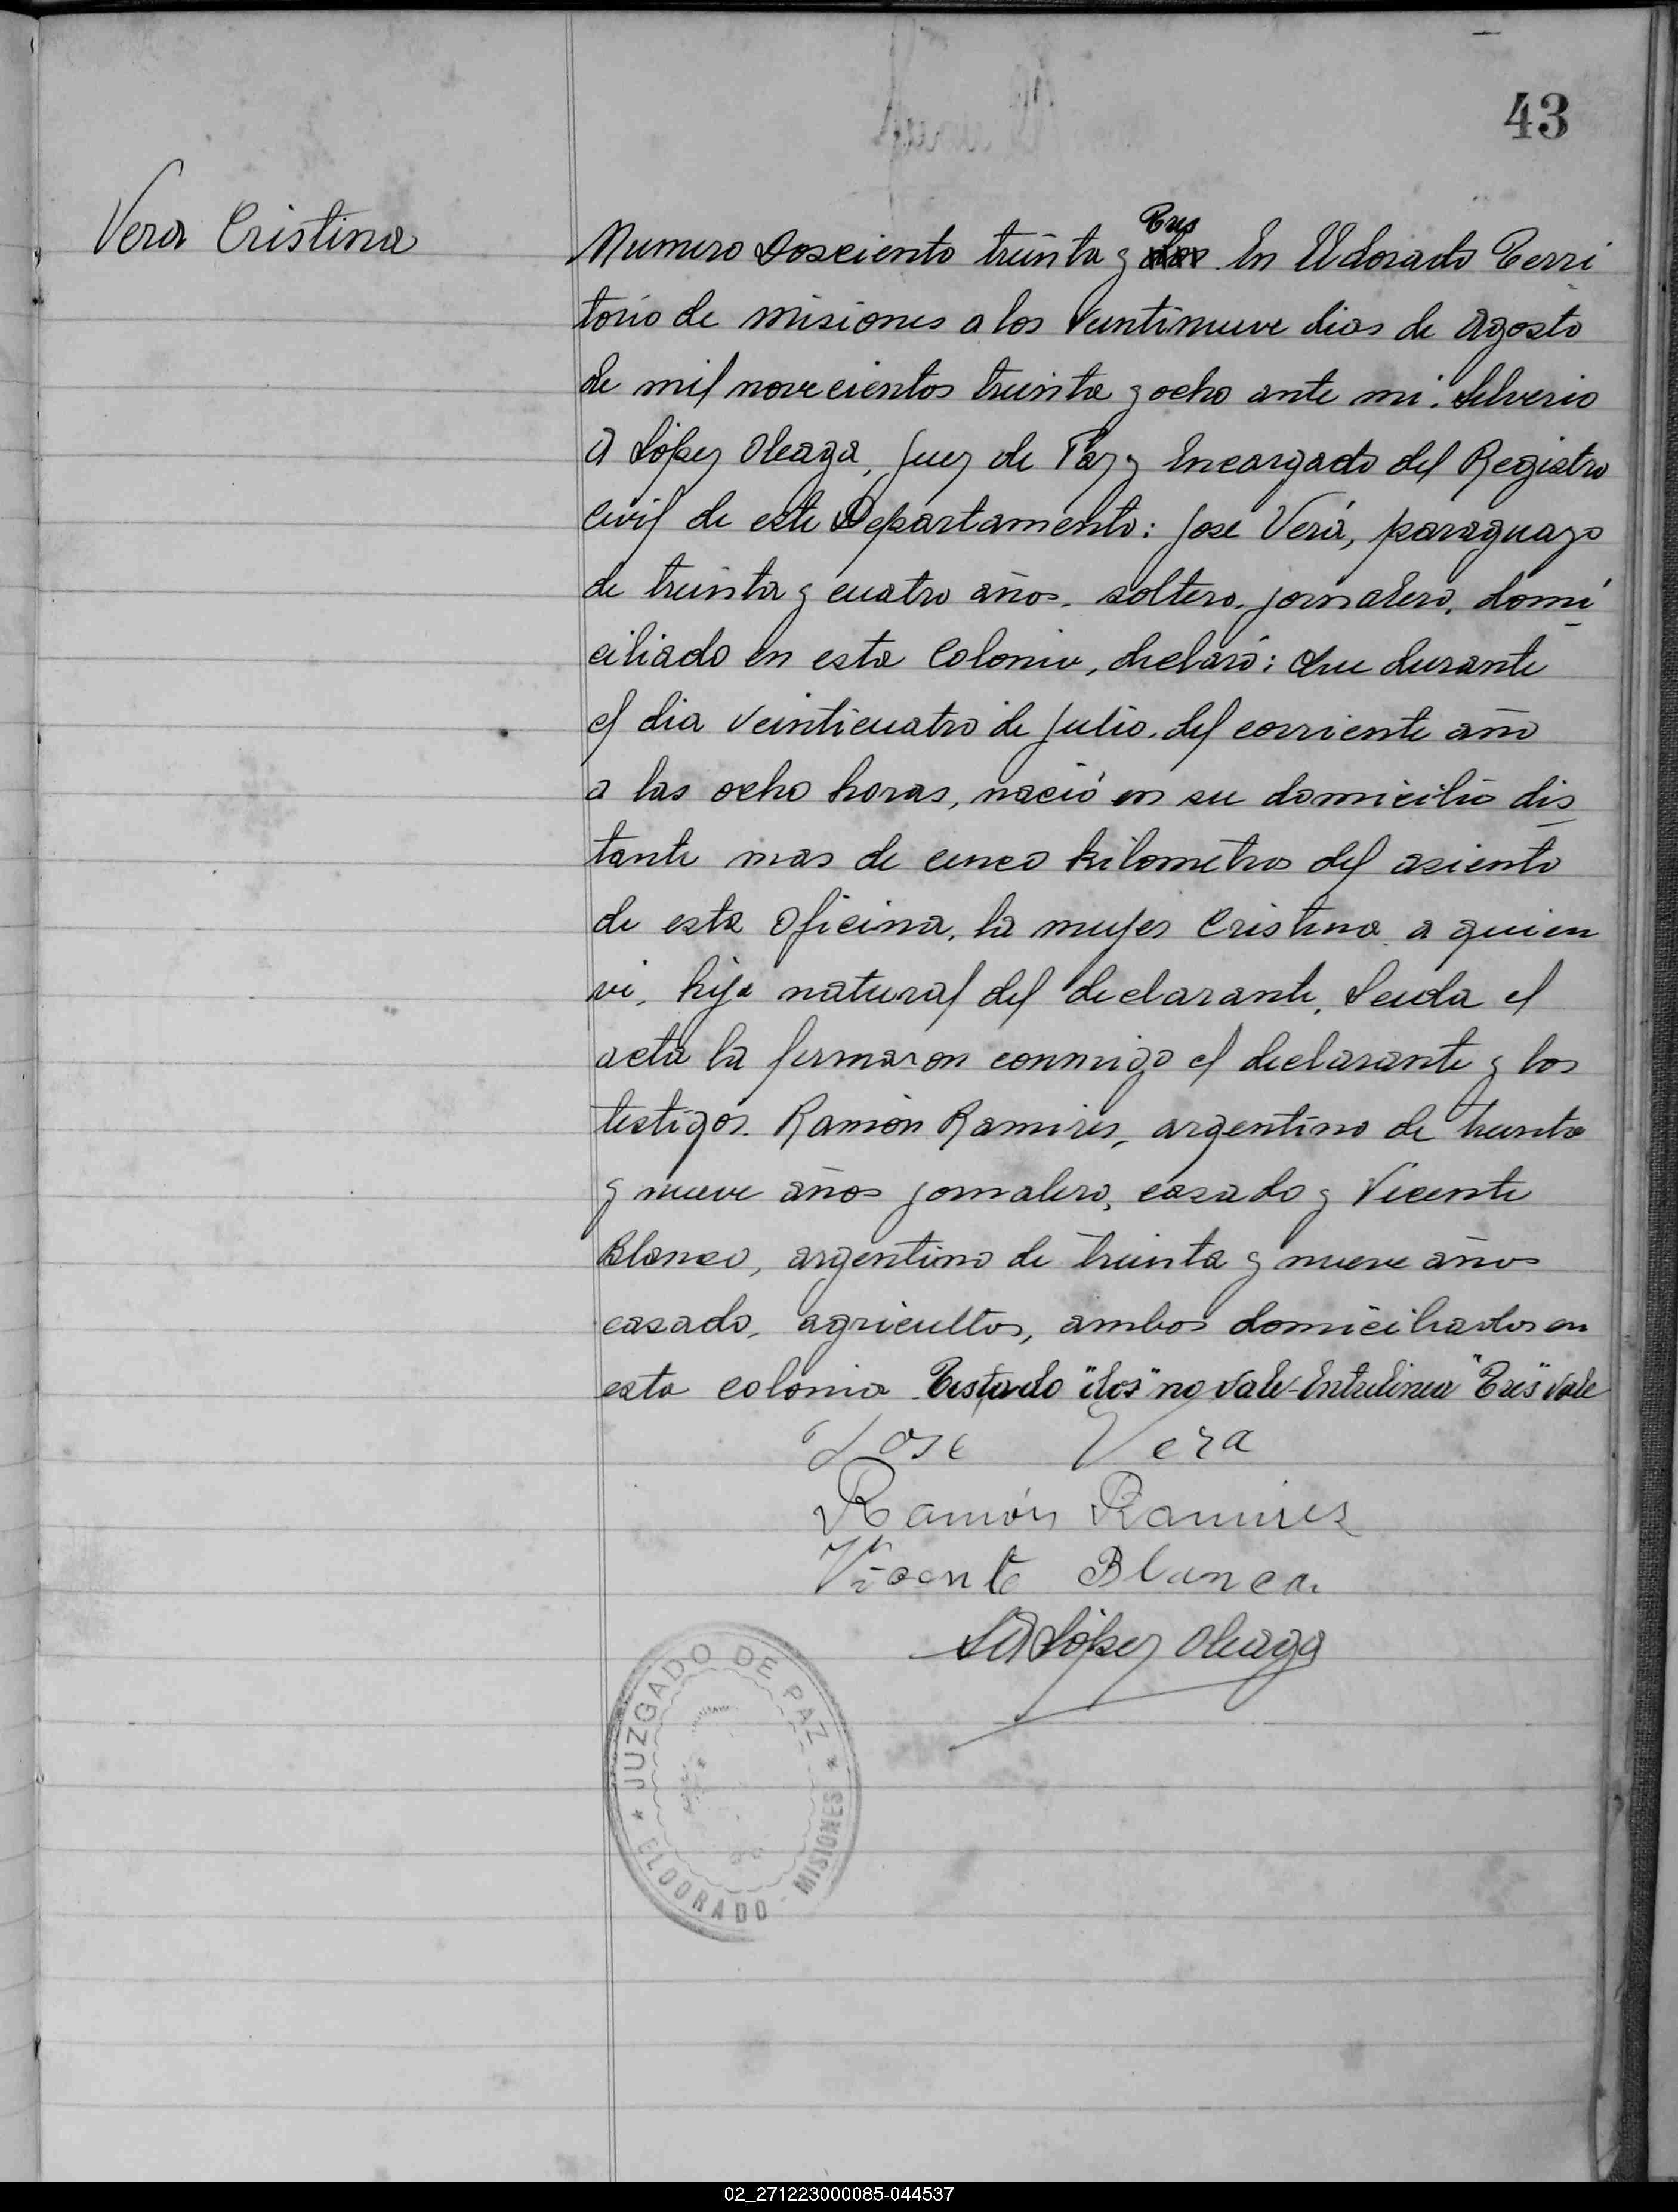 43
Vera Cristina
Tres
Numero Dosciento treinta y dos. En Eldorado Terri
torio de misiones a los Veintinueve dias de Agosto
de mil novecientos treinta y ocho ante mi. Silverio
A López Oleaga, Juez de Paz y Encargado del Registro
Civil de este Departamento: Jose Verá, paraguayo
de treinta y cuatro años. soltero, jornalero, domi
ciliado en esta Colonia, declaró: Que durante
el dia veinticuatro de Julio. del corriente año
a las ocho horas, nació en su domicilio dis
tante mas de cinco kilometros del asiento
de esta Oficina, la mujer Cristina a quien
vi, hija natural del declarante, Leida el
acta la firmaron conmigo el declarante y los
testigos. Ramón Ramires, argentino de treinta
y nueve años jornalero, casado y Vicente
Blanco, argentino de treinta y nueve años
casado, agricultor, ambos domiciliados en
esta colonia. Testado "dos" no vale-Entrelinea "Tres" vale
Jose Vera
Ramón Ramires
Vicente Blanco.
SA López Oleaga
JUZGADO DE PAZ
ELDORADO - MISIONES
02_271223000085-044537